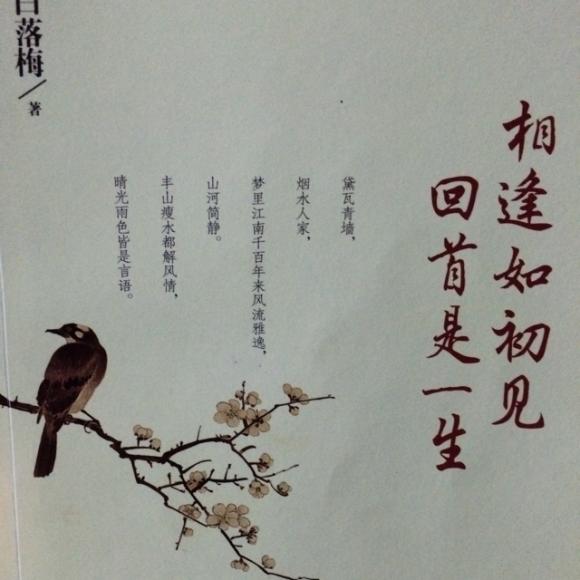 相逢如初见
回首是一生
黛瓦青墙，
烟水人家，
梦里江南千百年来风流雅逸，
山河简静。
丰山瘦水都解风情，
晴光雨色皆是言语。
白落梅/著